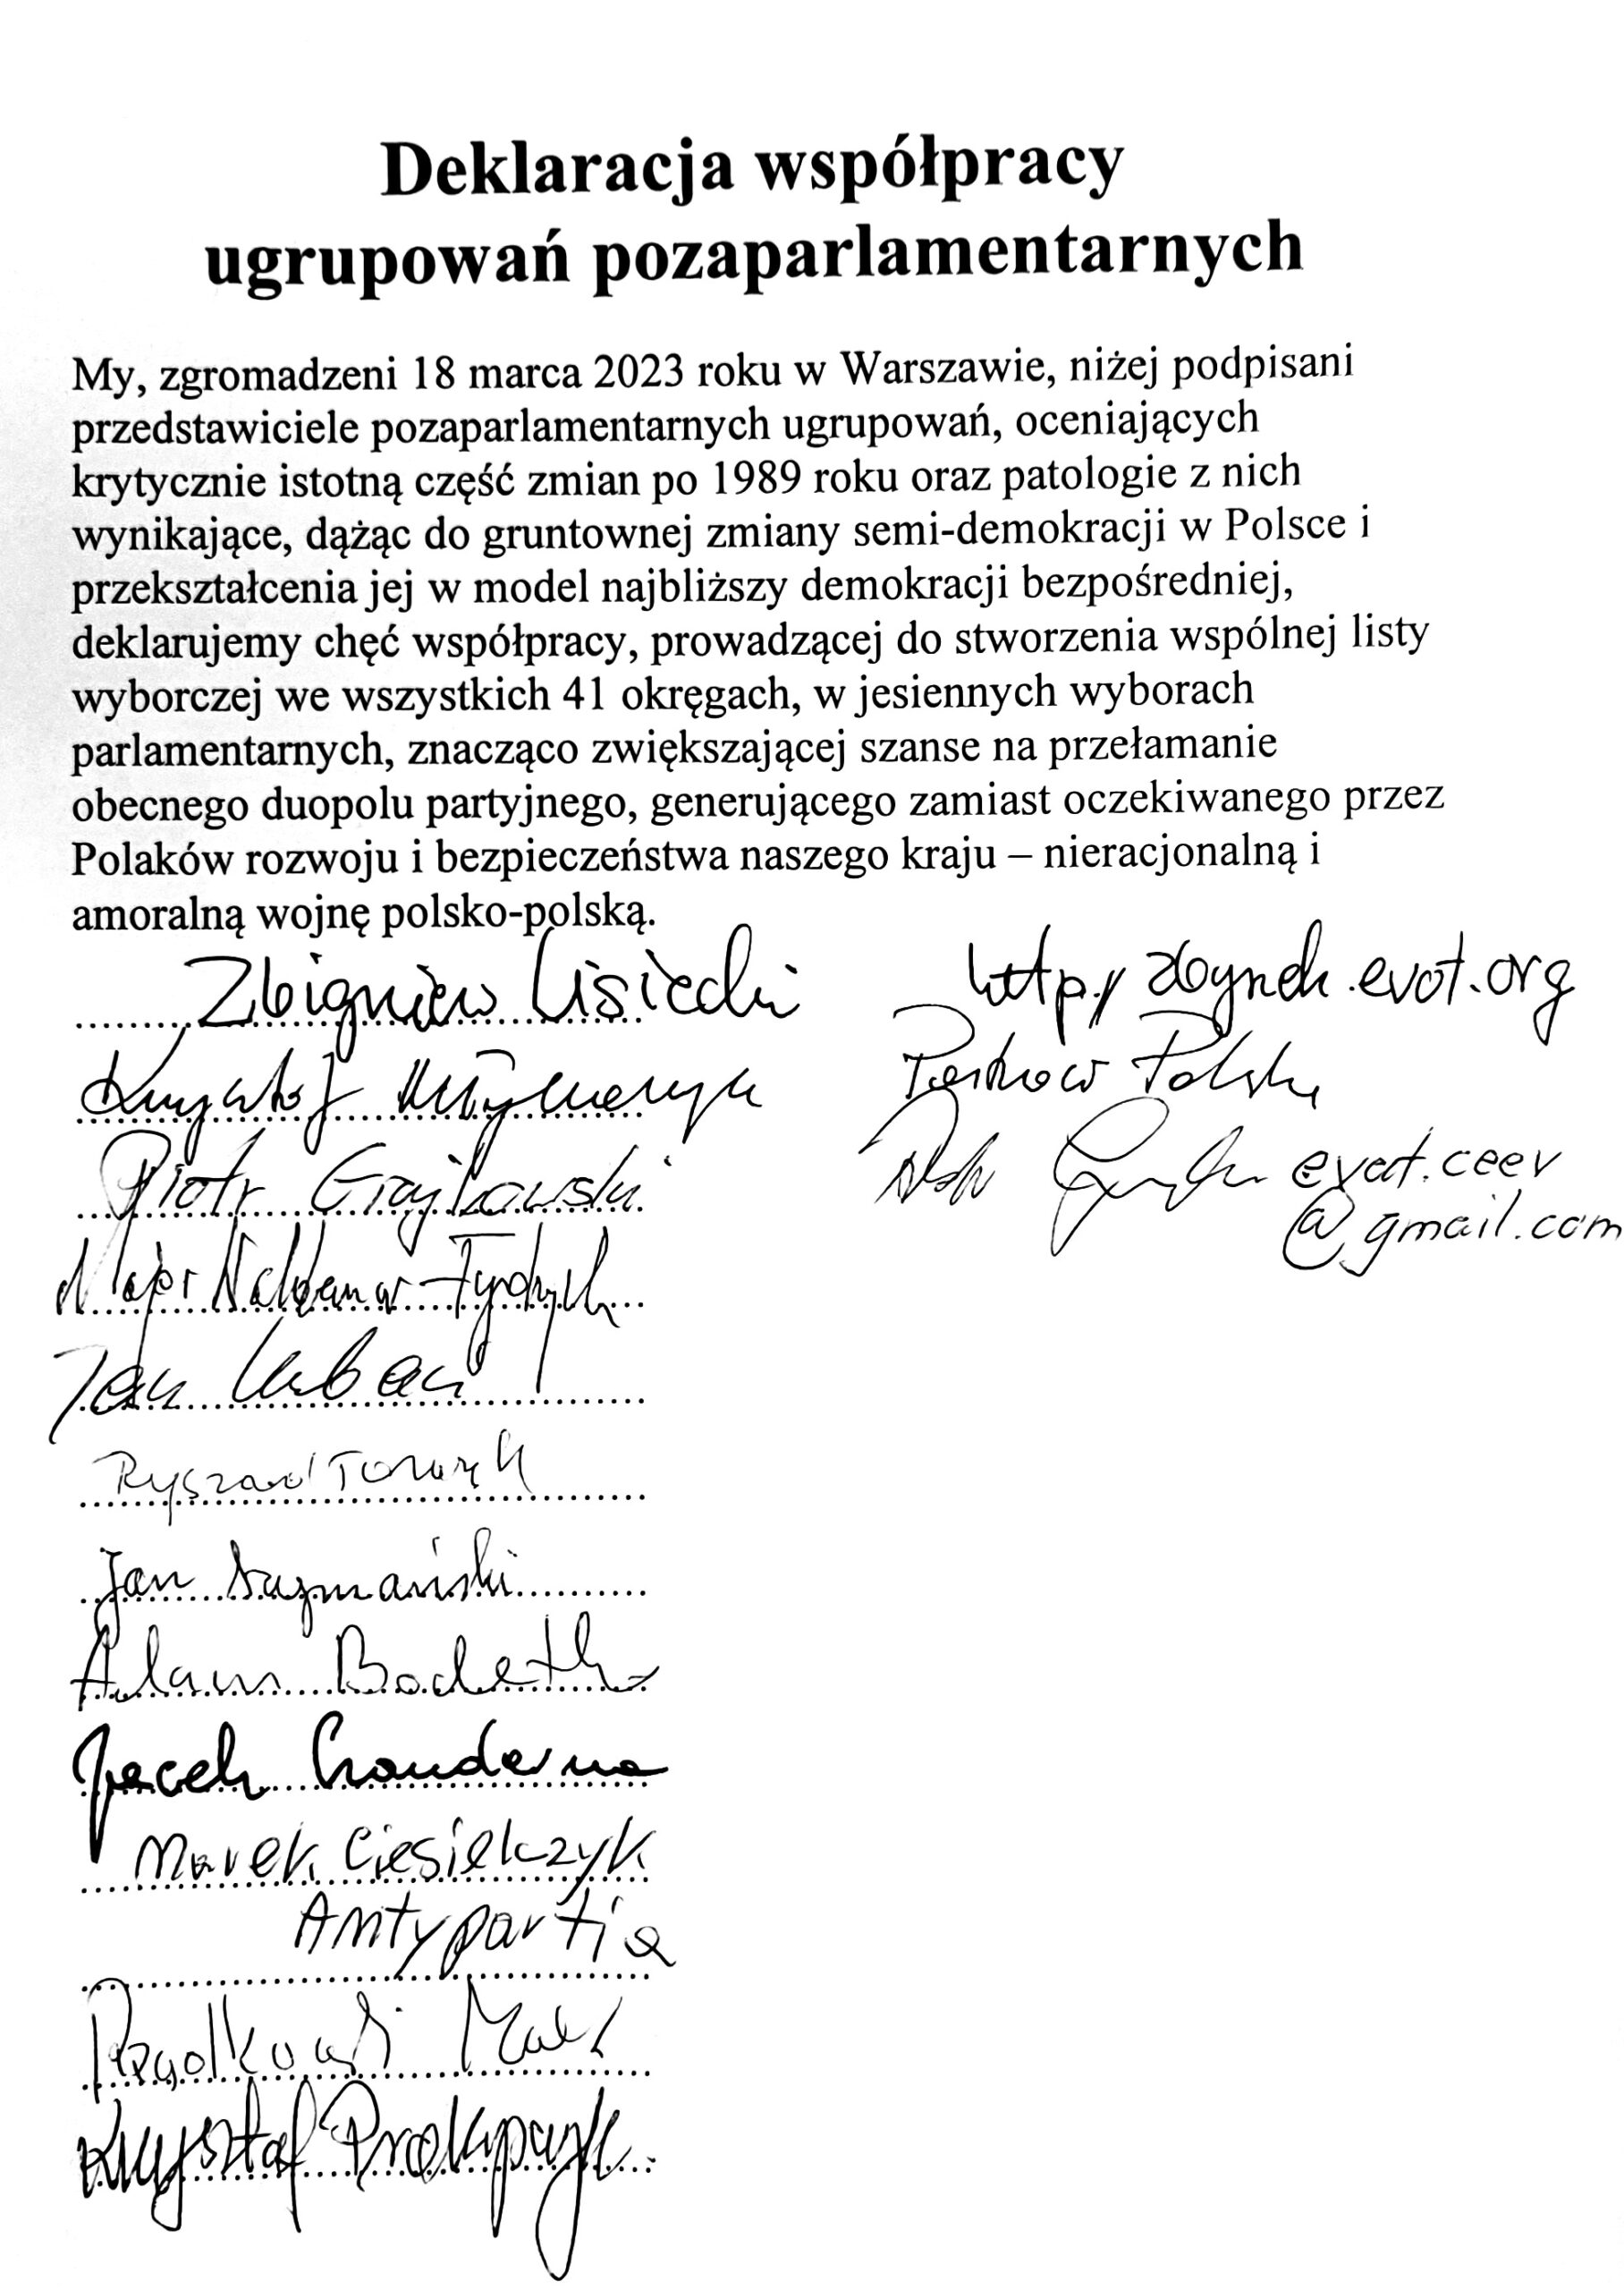 Deklaracja współpracy
ugrupowań pozaparlamentarnych
My, zgromadzeni 18 marca 2023 roku w Warszawie, niżej podpisani
przedstawiciele pozaparlamentarnych ugrupowań, oceniających
krytycznie istotną część zmian po 1989 roku oraz patologie z nich
wynikające, dążąc do gruntownej zmiany semi-demokracji w Polsce i
przekształcenia jej w model najbliższy demokracji bezpośredniej,
deklarujemy chęć współpracy, prowadzącej do stworzenia wspólnej listy
wyborczej we wszystkich 41 okręgach, w jesiennych wyborach
parlamentarnych, znacząco zwiększającej szanse na przełamanie
obecnego duopolu partyjnego, generującego zamiast oczekiwanego przez
Polaków rozwoju i bezpieczeństwa naszego kraju – nieracjonalną i
amoralną wojnę polsko-polską.
Zbigniew Lisiecki
Krzysztof
Piotr
Major Waldemar Fydrych
Jan Urban
Ryszard
Jan
Adam
Jacek
Marek Ciesielczyk
Antypartia
Krzysztof
evot.ceev
@gmail.com